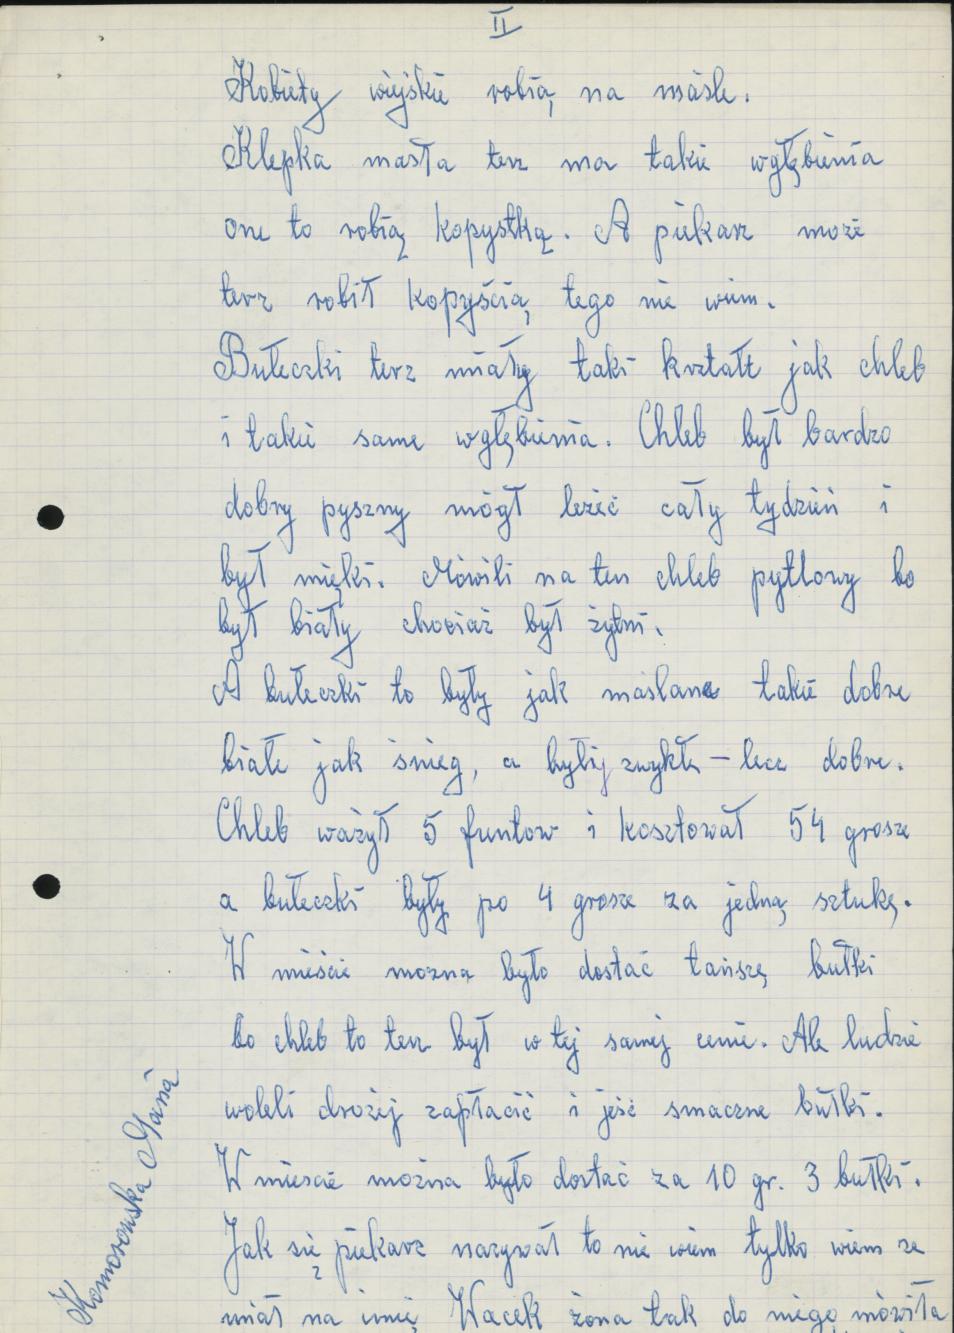 II
Kobiety wiejskie robią na maśle.
Klepka masła terz ma takie wgłębienia
one to robią kopystką. A piekarz może
terz robił kopyścią tego nie wiem.
Bułeczki terz miały taki krztałt jak chleb
i takie same wgłębienia. Chleb był bardzo
dobry pyszny mógł leżeć cały tydzień i
był mięki. Mówili na ten chleb pytlowy bo
był biały chociaż był żytni.
A bułeczki to były jak maslane takie dobre
białe jak śnieg, a byłij zwykłe – lecz dobre.
Chleb ważył 5 funtow i kosztował 54 grosze
a bułeczki były po 4 grosze za jedną sztukę.
W mieście mozna było dostać tańszę bułki
bo chleb to terz był w tej samej cenie. Ale ludzie
woleli drożej zapłacić i jeść smaczne bułki.
W miescie można było dostać za 10 gr. 3 bułki.
Jak się piekarz nazywał to nie wiem tylko wiem ze
miał na imię Wacek żona tak do niego mówiła
Komorowska Maria